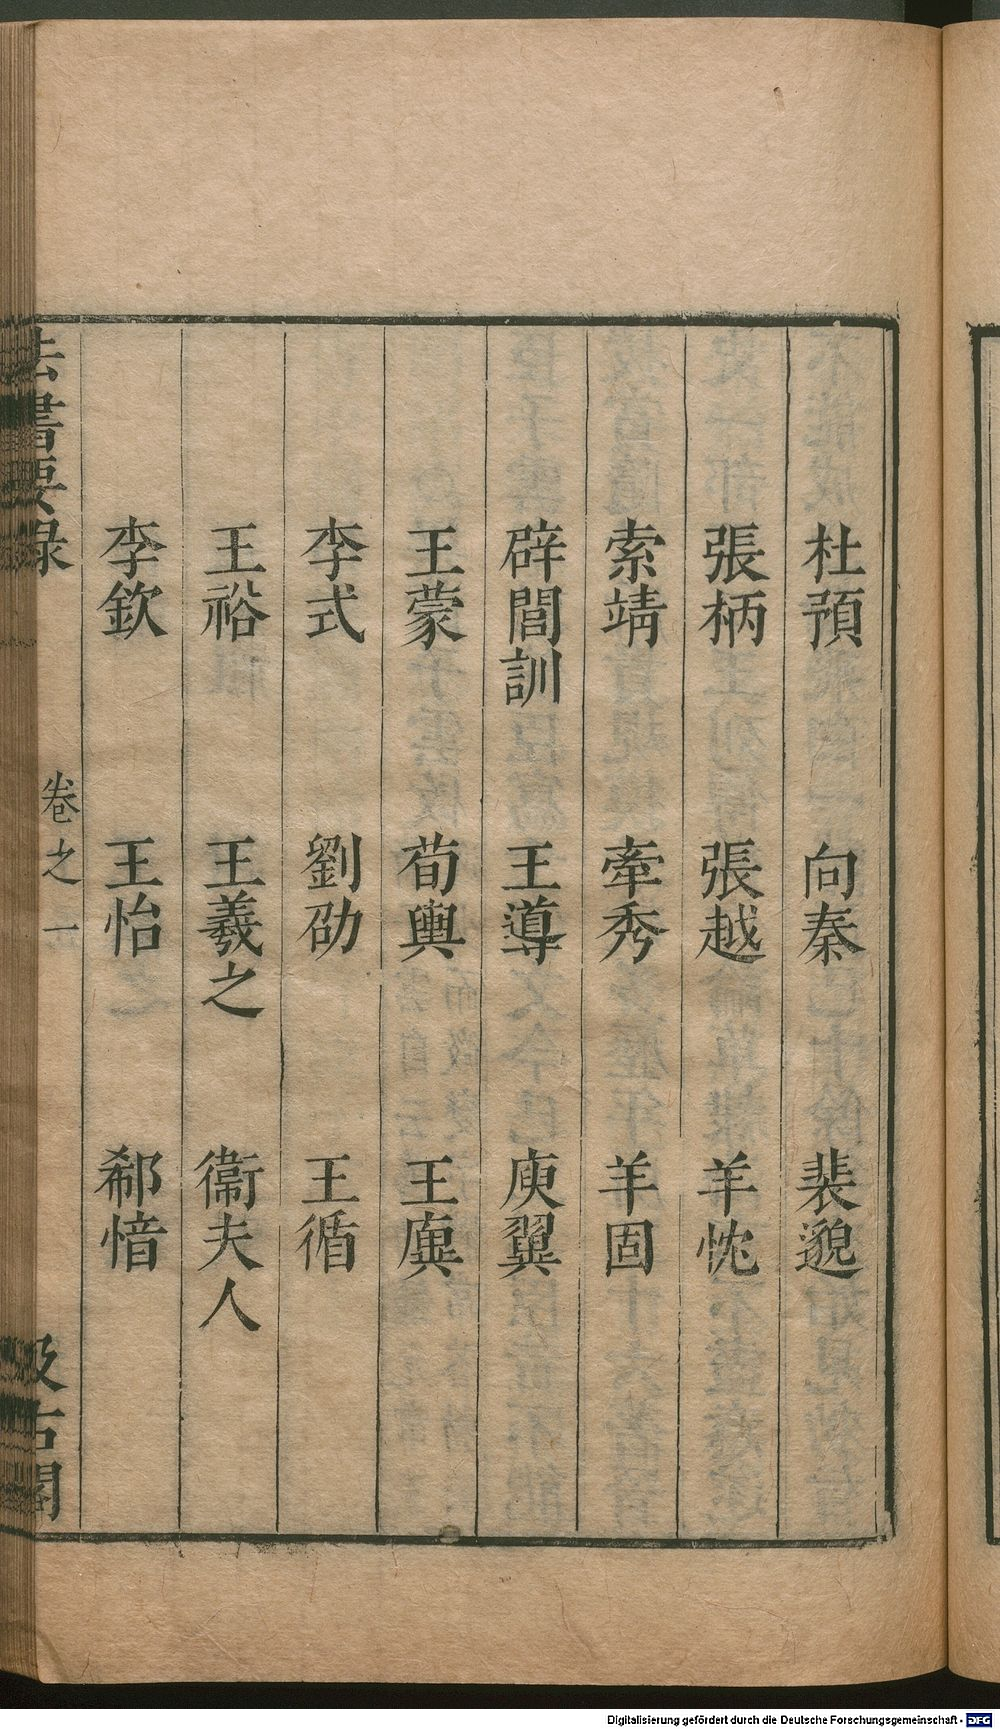 杜預 向秦 裴邈
張柄 張越 羊忱
索靖 牽秀 羊固
辟閭訓 王導 庾翼
王蒙 荀輿 王廙
李式 劉劭 王循
王裕 王羲之 衞夫人
李欽 王怡 郗愔
法書要錄 卷之一 汲古閣
Digitalisierung gefördert durch die Deutsche Forschungsgemeinschaft - DFG